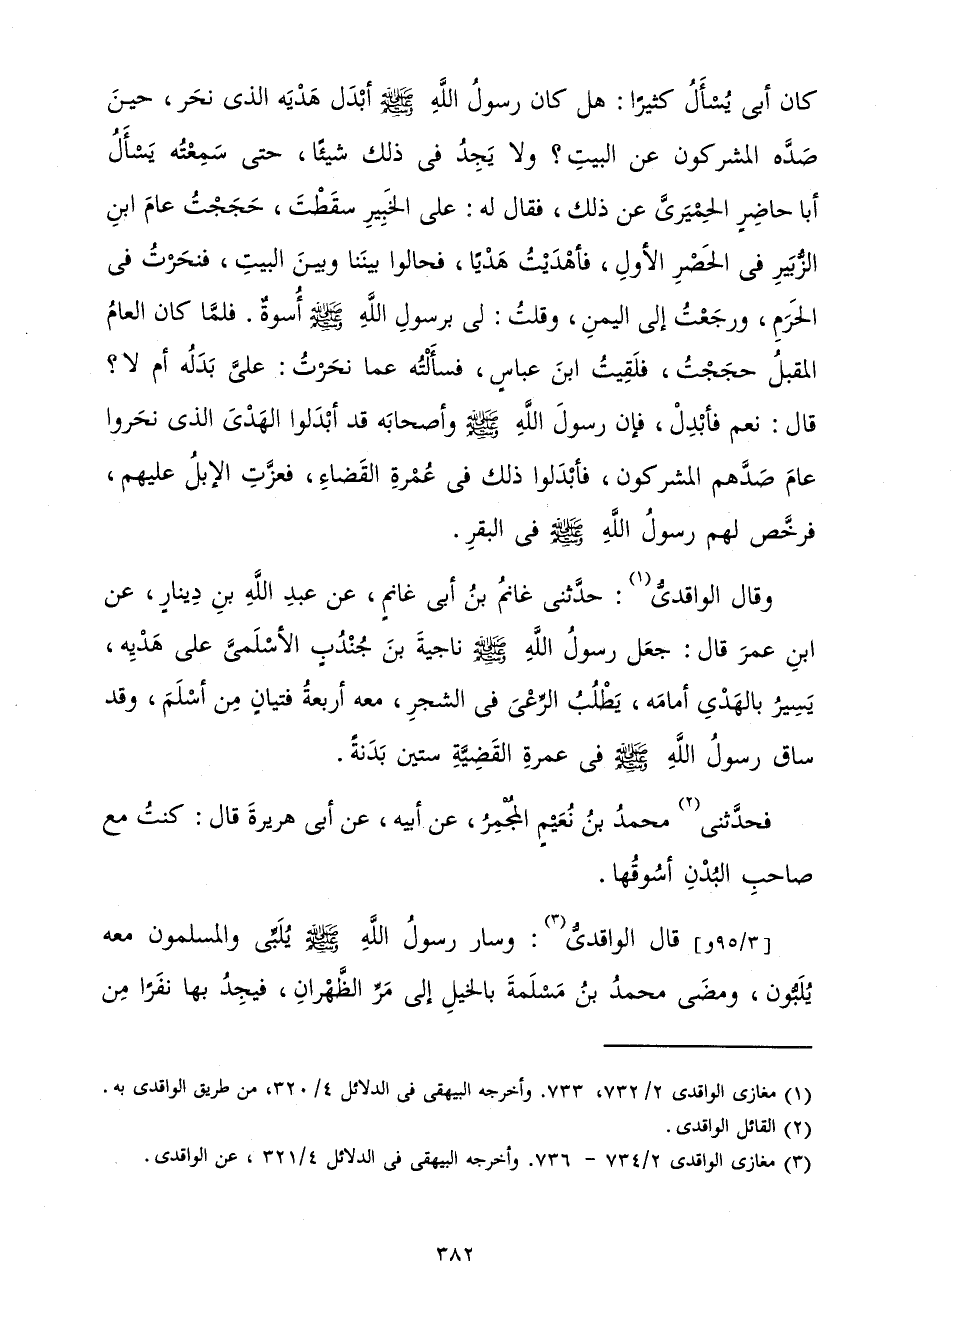 كان أبى يُسْأَلُ كثيرًا : هل كان رسولُ اللَّهِ ﷺ أبْدَل هَدْيَه الذى نحَر ، حينَ
صَدَّه المشركون عن البيتِ ؟ ولا يَجِدُ فى ذلك شيئًا ، حتى سَمِعْتُه يَسْأَلُ
أبا حاضِرٍ الحِمْيَرىَّ عن ذلك ، فقال له : على الخَبِيرِ سقَطْتَ ، حَجَجْتُ عامَ ابنِ
الزُّبَيرِ فى الحَصْرِ الأولِ ، فأهْدَيْتُ هَدْيًا ، فحالوا بينَنا وبينَ البيتِ ، فنحَرْتُ فى
الحَرَمِ ، ورجَعْتُ إلى اليمنِ ، وقلتُ : لى برسولِ اللَّهِ ﷺ أُسوةٌ . فلمَّا كان العامُ
المقبلُ حجَجْتُ ، فلَقِيتُ ابنَ عباسٍ ، فسأَلْتُه عما نحَرْتُ : علىَّ بَدَلُه أم لا ؟
قال : نعم فأبْدِلْ ، فإن رسولَ اللَّهِ ﷺ وأصحابَه قد أبْدَلوا الهَدْىَ الذى نحَروا
عامَ صَدَّهم المشركون ، فأبْدَلوا ذلك فى عُمْرةِ القَضاءِ ، فعزَّتِ الإبلُ عليهم ،
فرخَّص لهم رسولُ اللَّهِ ﷺ فى البقرِ .
وقال الواقدىُّ(١) : حدَّثنى غانمُ بنُ أبى غانمٍ ، عن عبدِ اللَّهِ بنِ دِينارٍ ، عن
ابنِ عمرَ قال : جعَل رسولُ اللَّهِ ﷺ ناجيةَ بنَ جُنْدُبٍ الأسْلَمىَّ على هَدْيِه ،
يَسِيرُ بالهَدْىِ أمامَه ، يَطْلُبُ الرِّعْىَ فى الشجرِ ، معه أربعةُ فتيانٍ مِن أسْلَمَ ، وقد
ساق رسولُ اللَّهِ ﷺ فى عمرةِ القَضِيَّةِ ستين بَدَنةً .
فحدَّثنى(٢) محمدُ بنُ نُعَيْمٍ المُجْمِرُ ، عن أبيه ، عن أبى هريرةَ قال : كنتُ مع
صاحبِ البُدْنِ أسُوقُها .
[٩٥/٣و] قال الواقدىُّ(٣) : وسار رسولُ اللَّهِ ﷺ يُلَبِّى والمسلمون معه
يُلَبُّون ، ومضَى محمدُ بنُ مَسْلَمةَ بالخيلِ إلى مَرِّ الظَّهْرانِ ، فيجِدُ بها نفَرًا مِن
(١) مغازى الواقدى ٧٣٢/٢، ٧٣٣. وأخرجه البيهقى فى الدلائل ٣٢٠/٤، من طريق الواقدى به .
(٢) القائل الواقدى .
(٣) مغازى الواقدى ٧٣٤/٢ - ٧٣٦. وأخرجه البيهقى فى الدلائل ٣٢١/٤ ، عن الواقدى .
٣٨٢